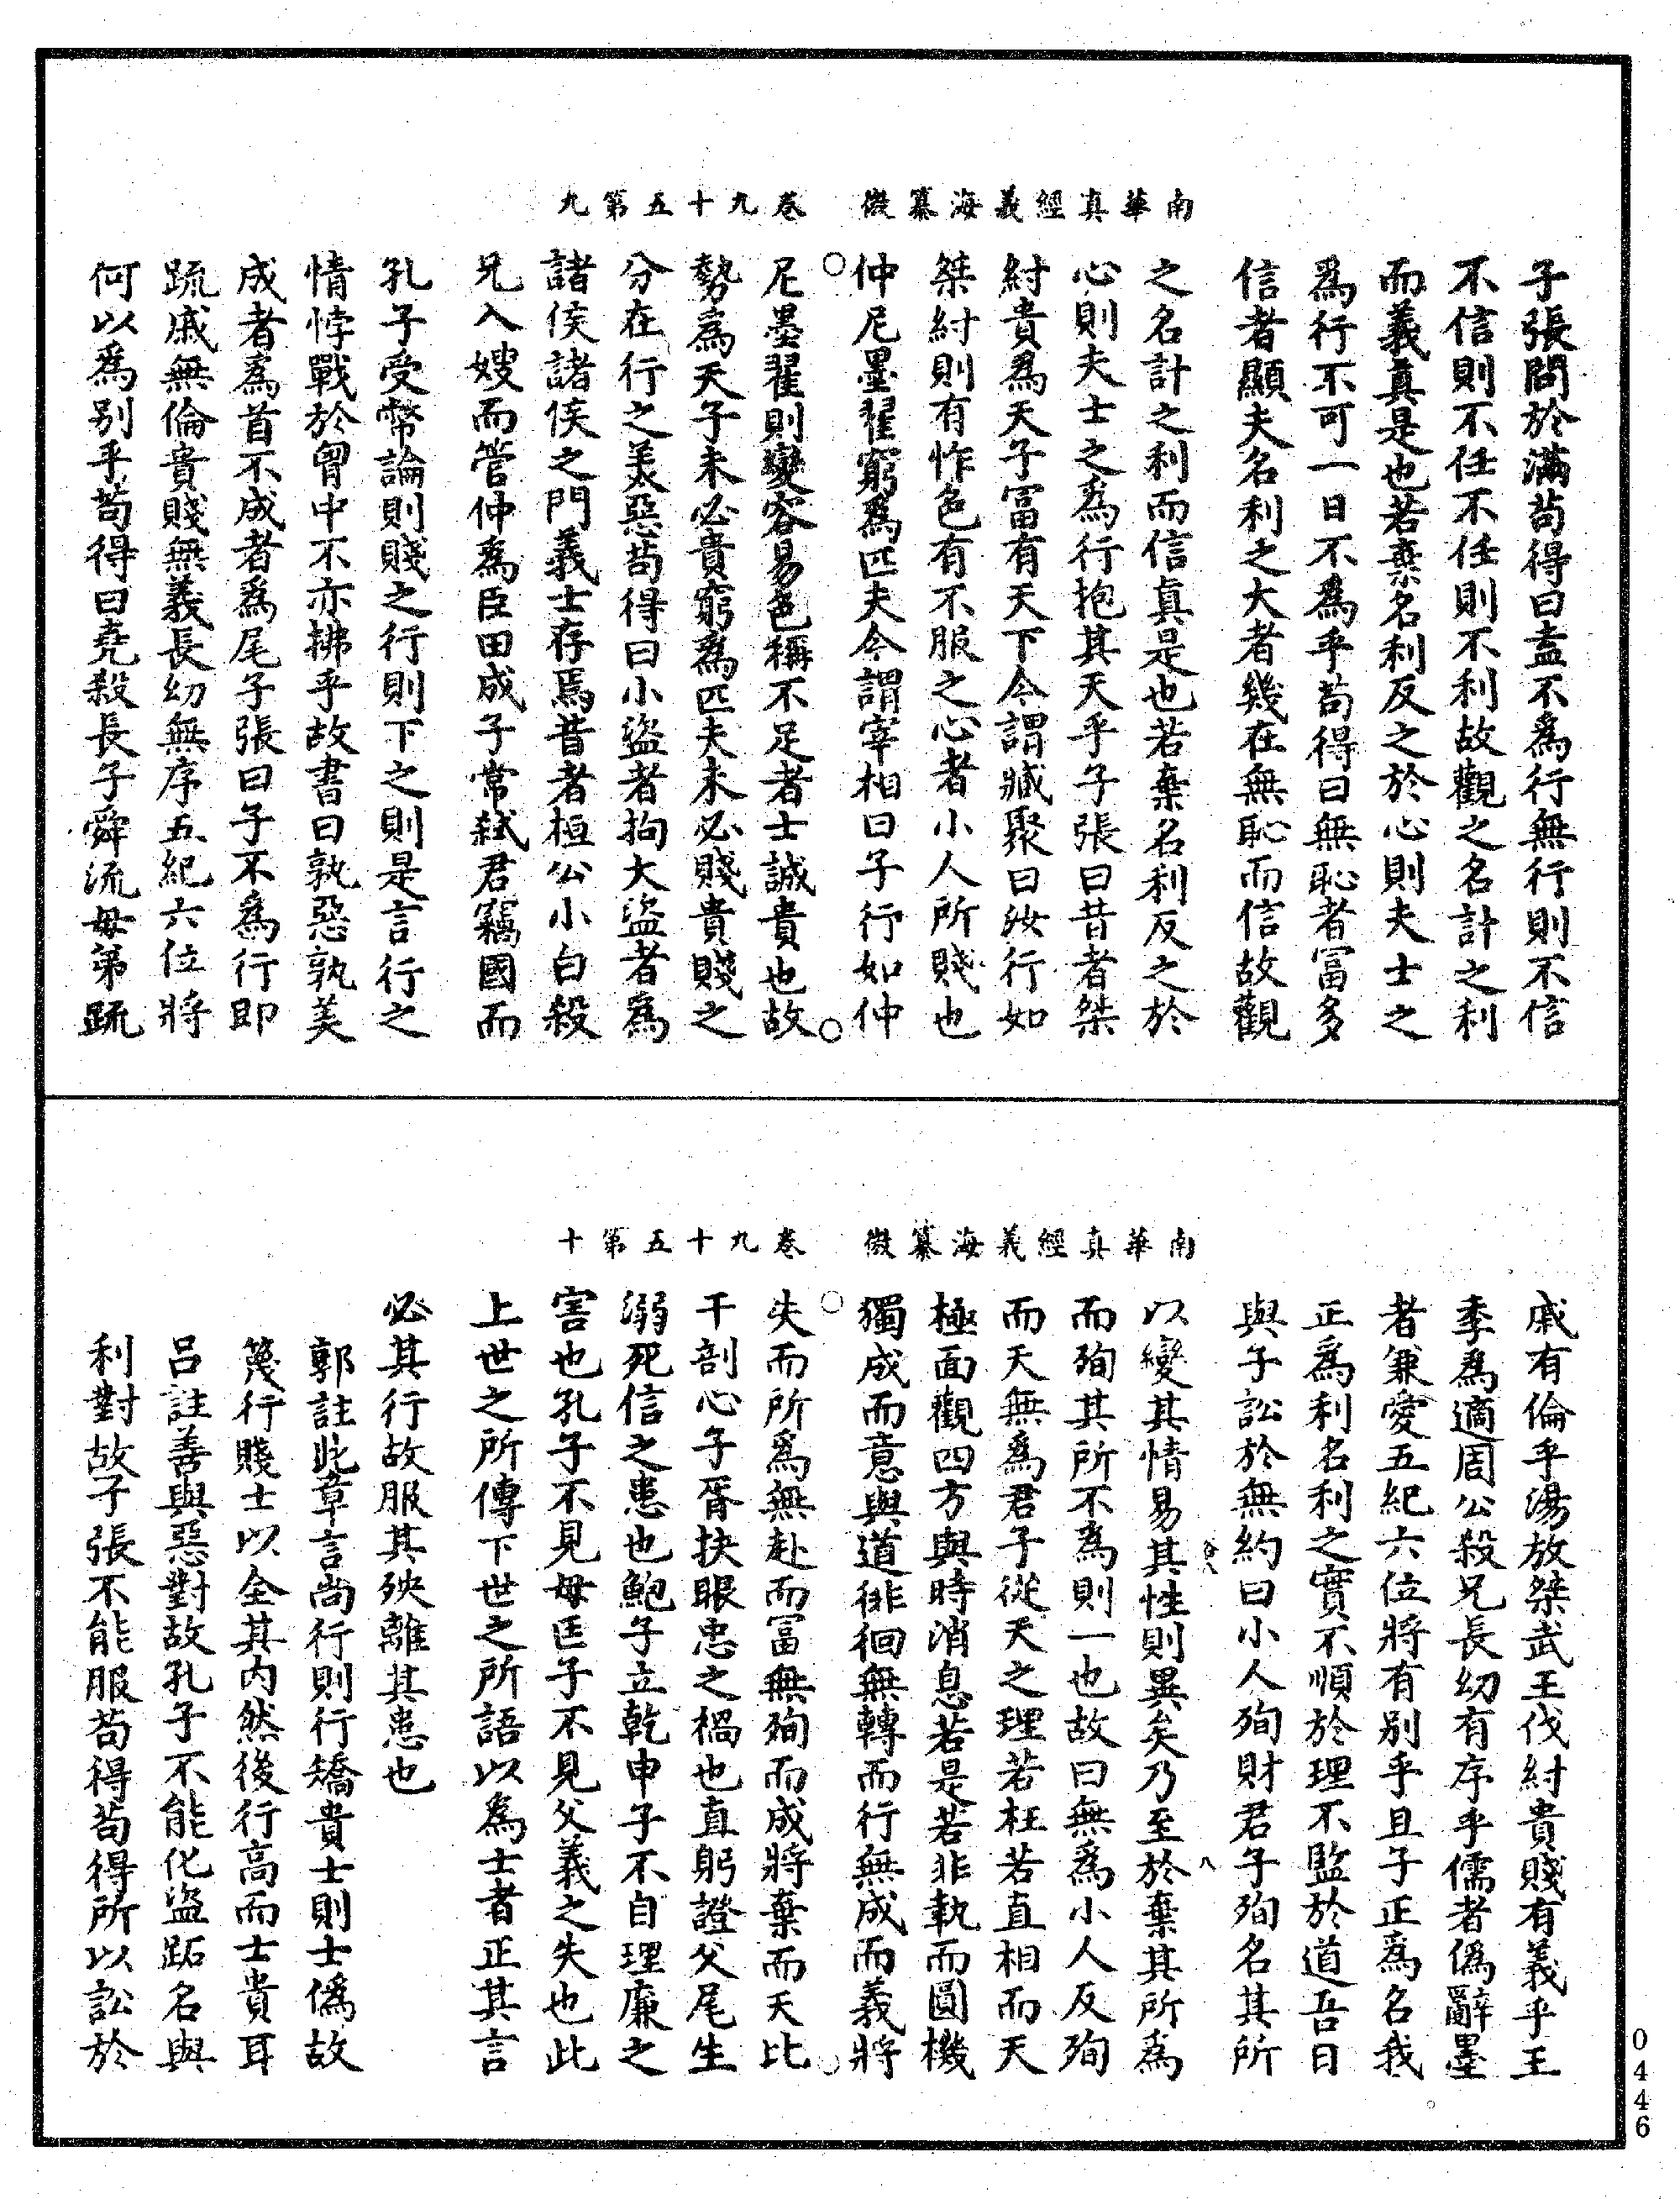 子張問於滿苟得曰盍不爲行無行則不信
不信則不任不任則不利故觀之名計之利
而義真是也若棄名利反之於心則夫士之
爲行不可一日不爲乎苟得曰無恥者冨多
信者顯夫名利之大者幾在無恥而信故觀
之名計之利而信眞是也若棄名利反之於
心則夫士之爲行抱其天乎子張曰昔者桀
紂貴爲天子冨有天下今謂臧聚曰汝行如
桀紂則有怍色有不服之心者小人所賤也
仲尼墨翟窮爲匹夫今謂宰相曰子行如仲
南華真經義海纂微 卷九十五第九
尼墨翟則變容易色稱不足者士誠貴也故
勢爲天子未必貴窮爲匹夫未必賤貴賤之
分在行之美惡苟得曰小盜者拘大盜者爲
諸侯諸侯之門義士存焉昔者桓公小白殺
兄入嫂而管仲爲臣田成子常弒君竊國而
孔子受幣論則賤之行則下之則是言行之
情悖戰於胷中不亦拂乎故書曰孰惡孰美
成者爲首不成者爲尾子張曰子不爲行即
疏戚無倫貴賤無義長幼無序五紀六位將
何以爲别乎苟得曰堯殺長子舜流母弟疏
戚有倫乎湯放桀武王伐紂貴賤有義乎王
季爲適周公殺兄長幼有序乎儒者僞辭墨
者兼愛五紀六位將有别乎且子正爲名我
正爲利名利之實不順於理不監於道吾日
與子訟於無約曰小人殉財君子殉名其所
八
以變其情易其性則異矣乃至於棄其所爲
而殉其所不爲則一也故曰無爲小人反殉
而天無爲君子從天之理若枉若直相而天
極面觀四方與時消息若是若非執而圓機
獨成而意與道徘徊無轉而行無成而義將
南華真經義海纂微 卷九十五第十
失而所爲無赴而冨無殉而成將棄而天比
干剖心子胥抉眼忠之禍也直躬證父尾生
溺死信之患也鮑子立乾申子不自理廉之
害也孔子不見母匡子不見父義之失也此
上世之所傳下世之所語以爲士者正其言
必其行故服其殃離其患也
郭註此章言尚行則行矯貴士則士僞故
篾行賤士以全其内然後行高而士貴耳
吕註善與惡對故孔子不能化盜跖名與
利對故子張不能服苟得苟得所以訟於
0446